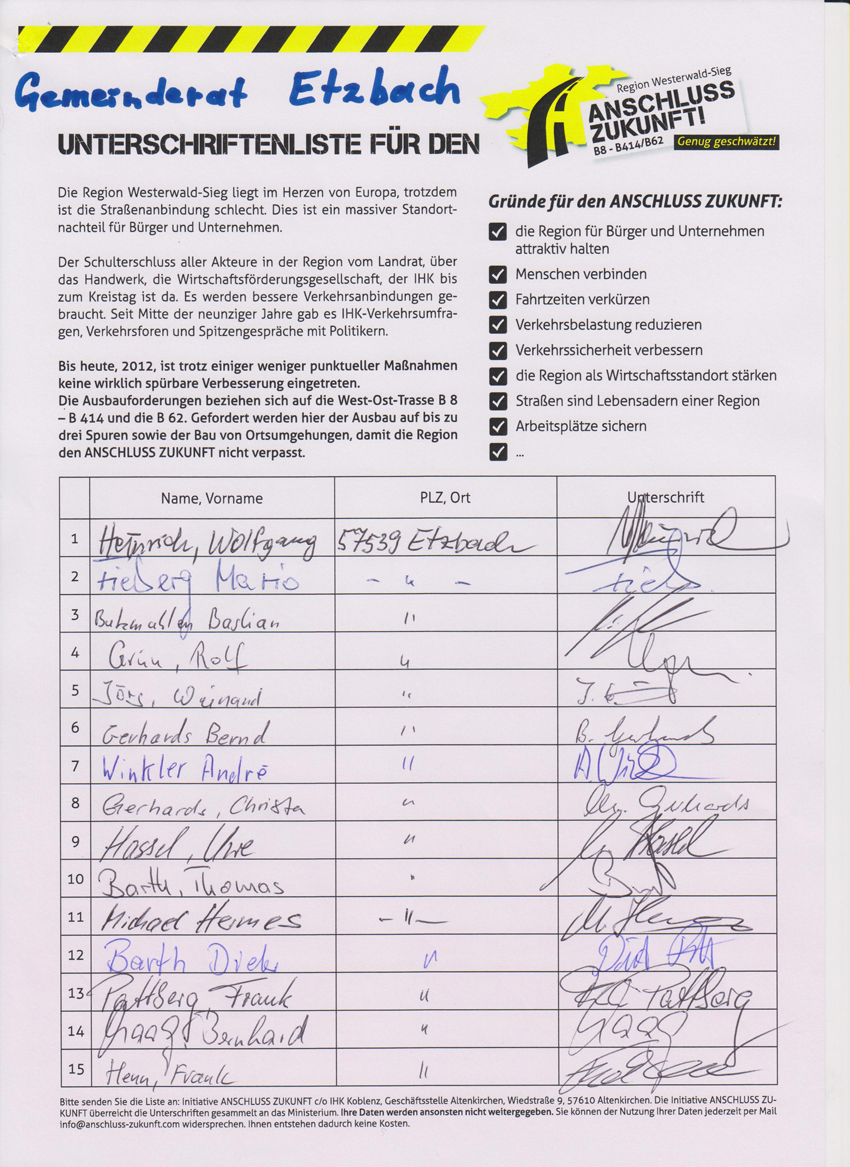 Gemeinderat Etzbach
UNTERSCHRIFTENLISTE FÜR DEN
Region Westerwald-Sieg
ANSCHLUSS
ZUKUNFT!
B8 - B414/B62
Genug geschwätzt!
Die Region Westerwald-Sieg liegt im Herzen von Europa, trotzdem
ist die Straßenanbindung schlecht. Dies ist ein massiver Standort-
nachteil für Bürger und Unternehmen.
Der Schulterschluss aller Akteure in der Region vom Landrat, über
das Handwerk, die Wirtschaftsförderungsgesellschaft, der IHK bis
zum Kreistag ist da. Es werden bessere Verkehrsanbindungen ge-
braucht. Seit Mitte der neunziger Jahre gab es IHK-Verkehrsumfra-
gen, Verkehrsforen und Spitzengespräche mit Politikern.
Bis heute, 2012, ist trotz einiger weniger punktueller Maßnahmen
keine wirklich spürbare Verbesserung eingetreten.
Die Ausbauforderungen beziehen sich auf die West-Ost-Trasse B 8
– B 414 und die B 62. Gefordert werden hier der Ausbau auf bis zu
drei Spuren sowie der Bau von Ortsumgehungen, damit die Region
den ANSCHLUSS ZUKUNFT nicht verpasst.
Gründe für den ANSCHLUSS ZUKUNFT:
die Region für Bürger und Unternehmen
attraktiv halten
Menschen verbinden
Fahrtzeiten verkürzen
Verkehrsbelastung reduzieren
Verkehrssicherheit verbessern
die Region als Wirtschaftsstandort stärken
Straßen sind Lebensadern einer Region
Arbeitsplätze sichern
...
Name, Vorname PLZ, Ort Unterschrift
1 Heinrich, Wolfgang 57539 Etzbach
2 Fieberg Mario - " -
3 Bastian "
4 Grün, Rolf "
5 Jörg, Weinand "
6 Gerhards Bernd " B. Gerhards
7 Winkler André "
8 Gerhards, Christa " Chr. Gerhards
9 Hassel, Uwe " Hassel
10 Barth, Thomas "
11 Michael Hermes - " -
12 Barth Dirk "
13 Pattberg, Frank " Pattberg
14 Haag, Bernhard " Haag
15 Henn, Frank "
Bitte senden Sie die Liste an: Initiative ANSCHLUSS ZUKUNFT c/o IHK Koblenz, Geschäftsstelle Altenkirchen, Wiedstraße 9, 57610 Altenkirchen. Die Initiative ANSCHLUSS ZU-
KUNFT überreicht die Unterschriften gesammelt an das Ministerium. Ihre Daten werden ansonsten nicht weitergegeben. Sie können der Nutzung Ihrer Daten jederzeit per Mail
info@anschluss-zukunft.com widersprechen. Ihnen entstehen dadurch keine Kosten.